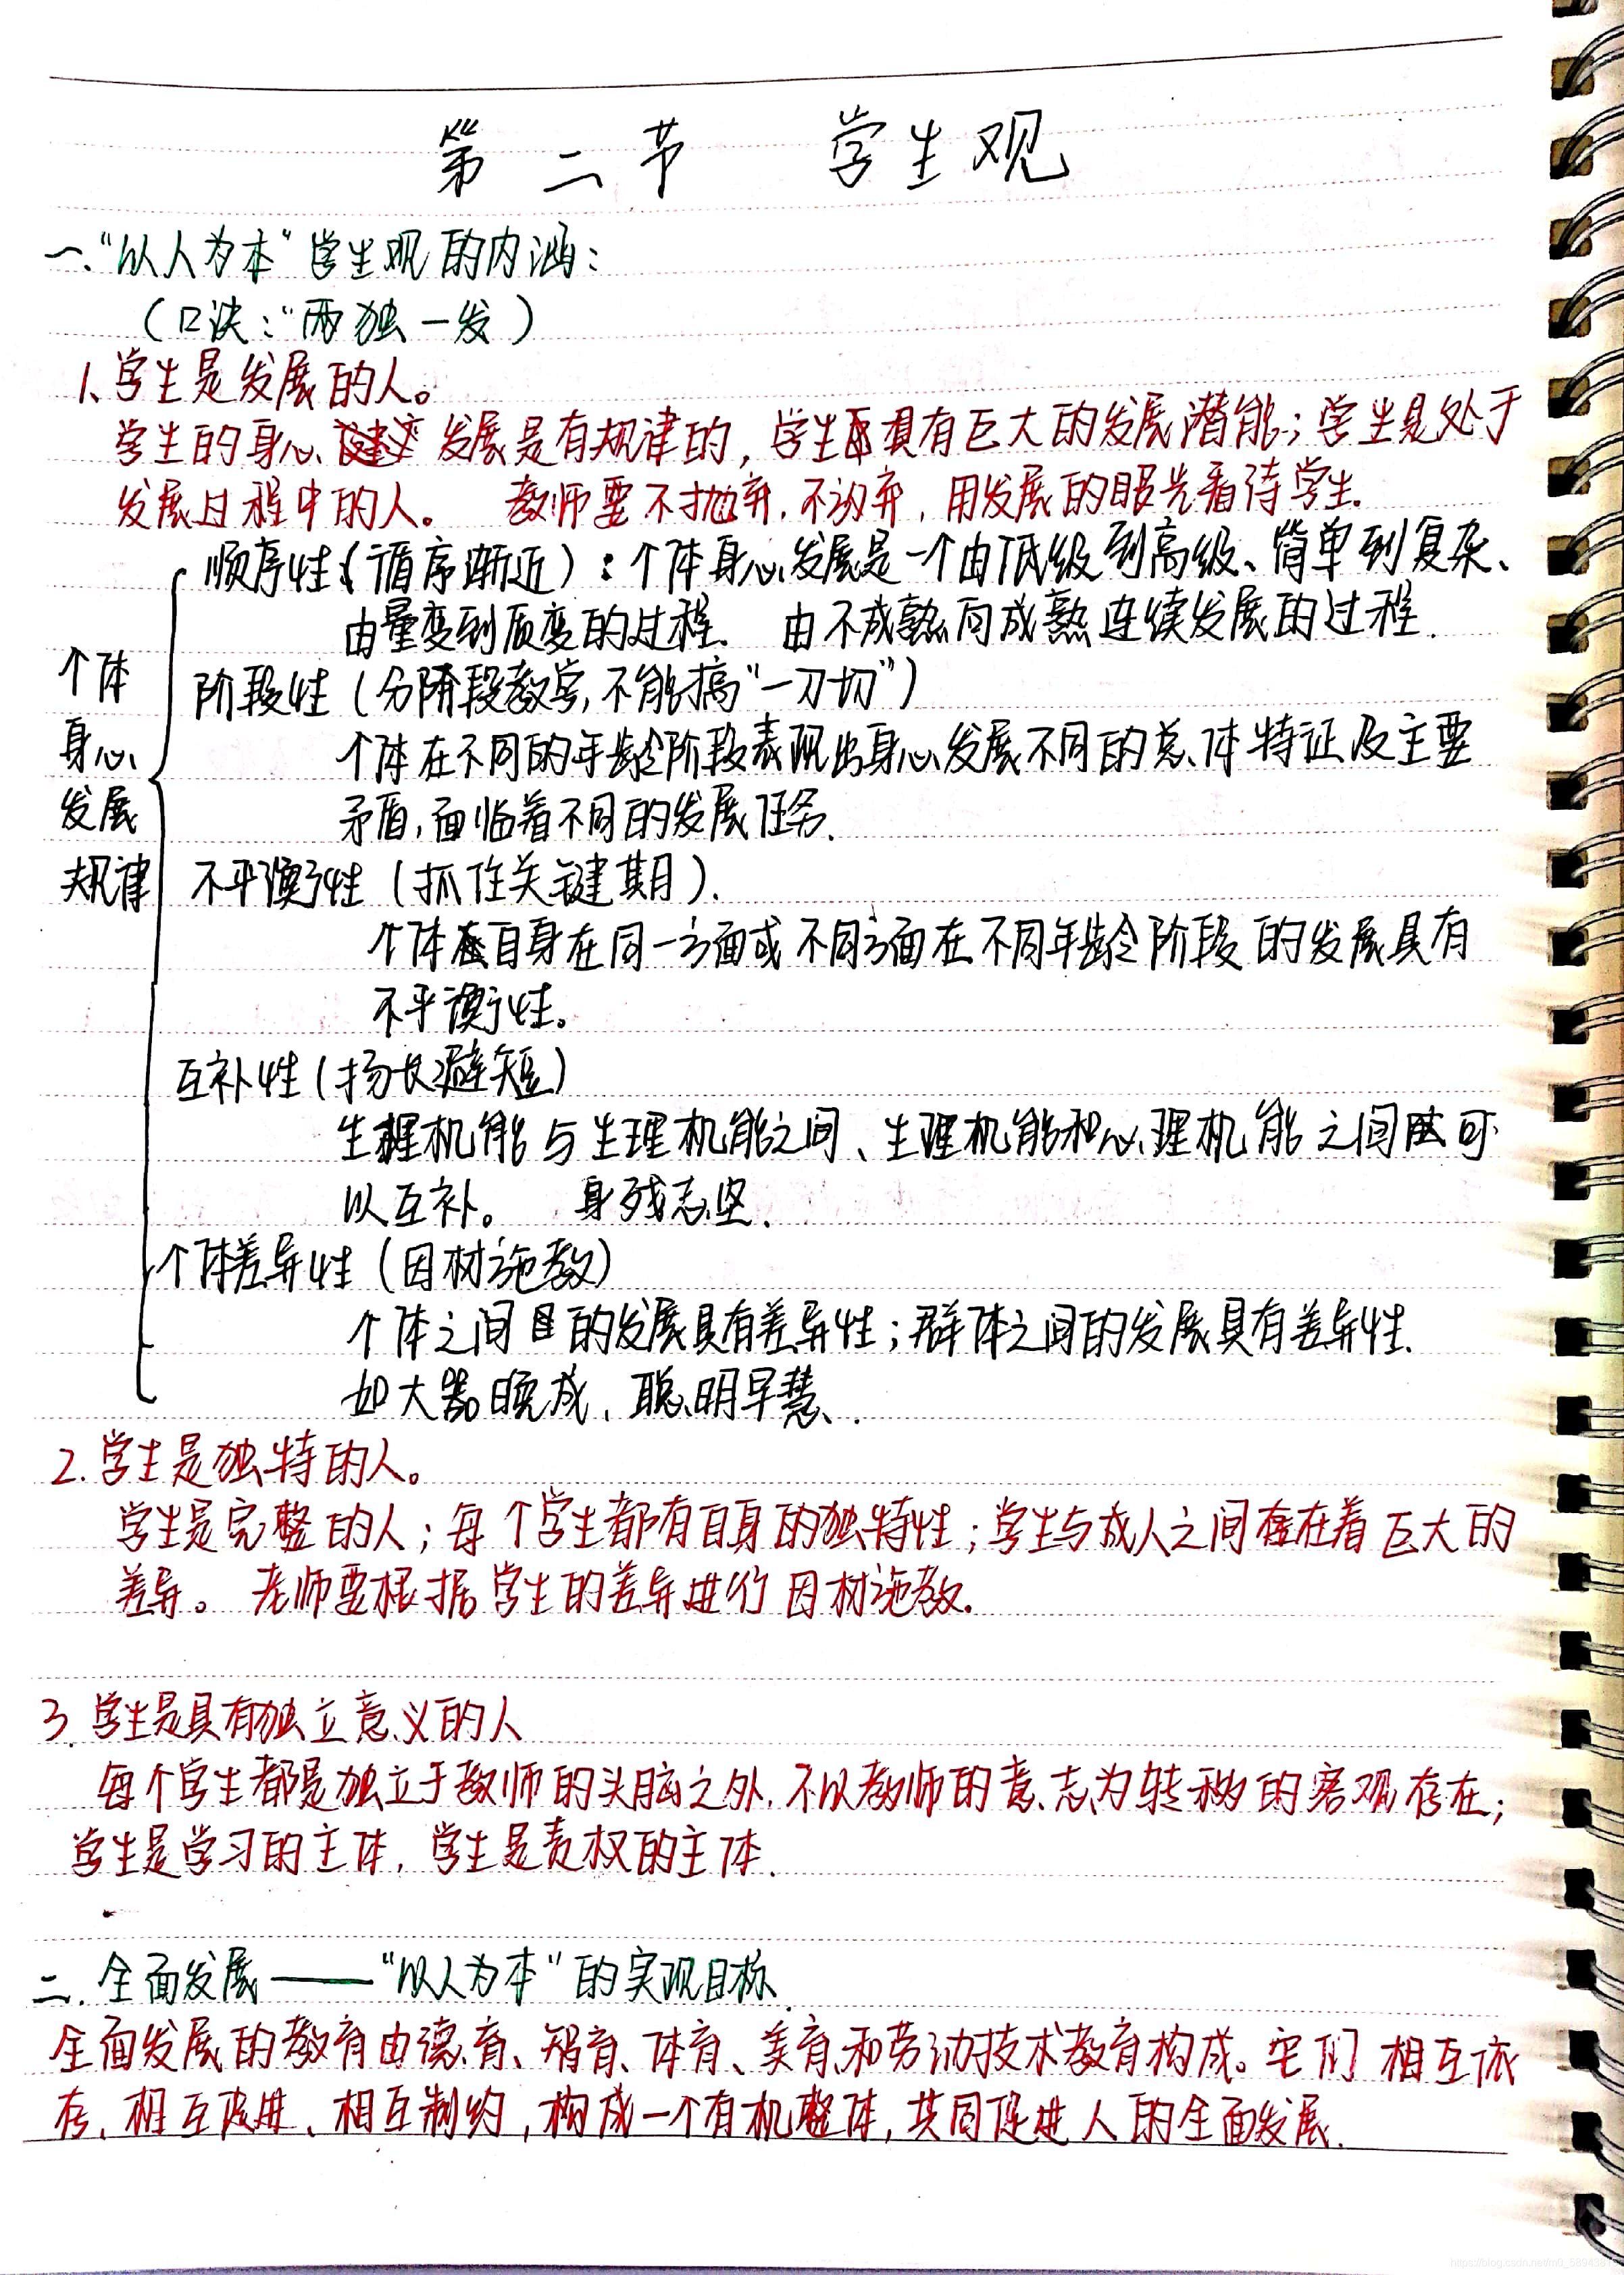 第二节 学生观
一、“以人为本”学生观的内涵：
（口决：“两独一发）
1、学生是发展的人。
学生的身心发展是有规律的，学生具有巨大的发展潜能；学生是处于
发展过程中的人。 教师要不抛弃、不放弃，用发展的眼光看待学生.
个体
身心
发展
规律
顺序性（循序渐近）：个体身心发展是一个由低级到高级、简单到复杂、
由量变到质变的过程. 由不成熟向成熟连续发展的过程.
阶段性（分阶段教学，不能搞“一刀切”）
个体在不同的年龄阶段表现出身心发展不同的总体特征及主要
矛盾，面临着不同的发展任务.
不平衡性（抓住关键期）.
个体自身在同一方面或不同方面在不同年龄阶段的发展具有
不平衡性。
互补性（扬长避短）
生理机能与生理机能之间、生理机能和心理机能之间可
以互补。 身残志坚.
个体差异性（因材施教）
个体之间的发展具有差异性；群体之间的发展具有差异性.
如大器晚成、聪明早慧.
2.学生是独特的人。
学生是完整的人；每个学生都有自身的独特性；学生与成人之间存在着巨大的
差异。 老师要根据学生的差异进行因材施教.
3.学生是具有独立意义的人
每个学生都是独立于教师的头脑之外，不以教师的意志为转移的客观存在；
学生是学习的主体，学生是责权的主体.
二.全面发展——“以人为本”的实现目标.
全面发展的教育由德育、智育、体育、美育和劳动技术教育构成。它们相互依
存、相互促进、相互制约，构成一个有机整体，共同促进人的全面发展.